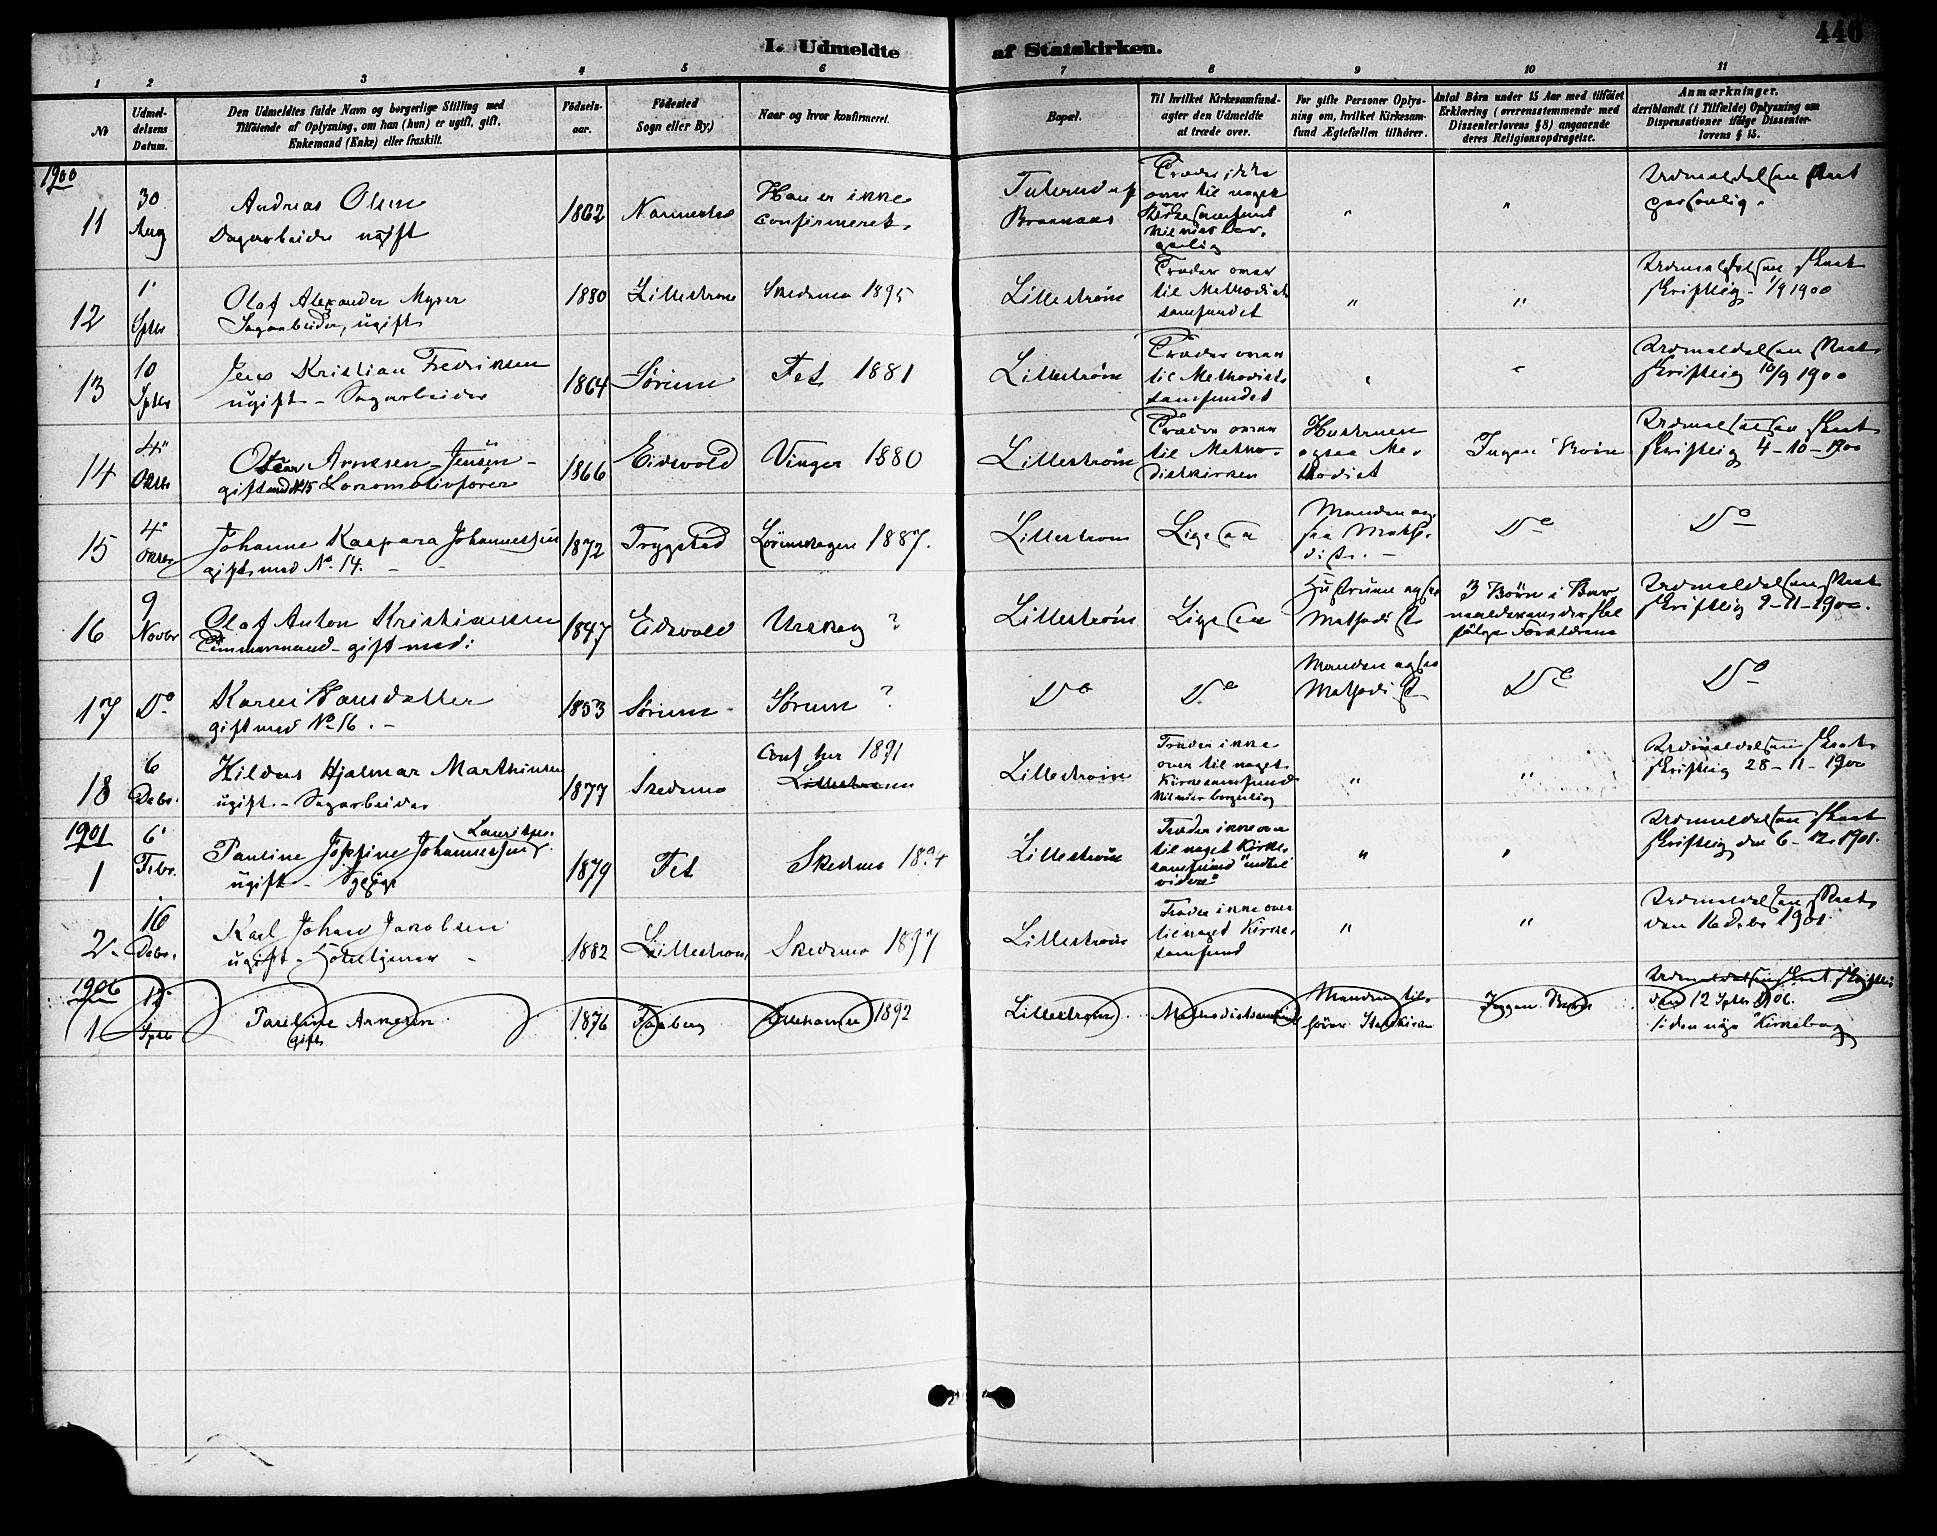 I. Udmeldte af Statskirken. 446
1 2 3 4 5 6 7 8 9 10 11
No
Udmel-
delsens
Datum.
Den Udmeldtes fulde Navn og borgerlige Stilling med
Tilføiende af Oplysning, om han (hun) er ugift, gift,
Enkemand (Enke) eller fraskilt.
Fødsels-
aar.
Fødested
Sogn eller By.)
Naar og hvor konfirmeret.
Bopæl.
Til hvilket Kirkesamfund-
agter den Udmeldte
at træde over.
For gifte Personer Oplys-
ning om, hvilket Kirkesam-
fund Ægtefællen tilhører.
Antal Børn under 15 Aar med tilføiet
Erklæring (overensstemmende med
Dissenterlovens § 8) angaaende
deres Religionsopdragelse.
Anmærkninger,
deriblandt (i Tilfælde) Oplysning om
Dispensationer ifølge Dissenter-
lovens § 15.
1900
11
30
Aug
Andreas Olsen
Dagarbeider ugift
1862
Nannestad
Han er ikke
confirmeret.
Træder ikke
over til noget
Kirkesamfund
Vil vies bor-
gerlig
"
"
Udmeldelsen skeet
personlig.
12
1'
Sptbr
Olaf Alexander Myrer
Sagarbeider, ugift
1880
Lillestrøm
Skedsmo 1895
Lillestrøm
Træder over
til Methodist
samfundet
"
"
Udmeldelsen skeet
skriftlig 1/9 1900
13
10
Sptbr
Jens Kristian Fredriksen
ugift - Sagarbeider
1864
Sørum
Fet 1881
Lillestrøm
Træder over
til Methodist
samfundet
"
"
Udmeldelsen skeet
skriftlig 10/9 1900
14
4"
Oktbr
Oscar Arnesen-Jensen-
gift med No 15 Lokomotivfører
1866
Eidsvold
Vinger 1880
Lillestrøm
Træder over
til Metho-
distkirken
Hustruen
ogsaa Me-
thodist
Ingen Børn
Udmeldelsen skeet
skriftlig 4-10-1900
15
4"
Oktbr
Johanne Kaspara Johannessen
gift med No 14.
1872
Trygstad
1887.
Lillestrøm
Ligesaa
Manden og-
saa Metho-
dist. -
Do
Do
16
9
Novbr
Olaf Anton Kristiansen
Tømmermand - gift med:
1847
Eidsvold
Urskog ?
Lillestrøm
Ligesaa
Hustruen ogsaa
Methodist
3 Børn i Bar-
nealderen der skal
følge Forældrene
Udmeldelsen skeet
skriftlig 9-11-1900.
17
Do
Karen Hansdatter
gift med No 16. -
1853
Sørum
Sørum ?
Do
Do
Manden ogsaa
Methodist
Do
Do
18
6
Debr.
Hildus Hjalmar Marthinsen
ugift. - Sagarbeider
1877
Skedsmo
Conf her 1891
Lillestrøm
Lillestrøm
Træder ikke
over til noget
Kirkesamfund
Vil vies borgerlig
"
"
Udmeldelsen skeet
skriftlig 28-11-1900
1901
1
6'
Febr.
Pauline Josefine Johannessen
ugift - Sypige
1879
Fet
Skedsmo 1894
Lillestrøm
Træder ikke over
til noget Kirke-
samfund "indtil
videre"
"
"
Udmeldelsen skeet
skriftlig den 6-12-1901.
2
16
Debr.
Karl Johan Jakobsen
ugift - Hoteltjener -
1882
Lillestrøm
Skedsmo 1897
Lillestrøm
Træder ikke over
til noget Kirke-
samfund
"
"
Udmeldelsen skeet
den 16 Debr 1901.
1906
1
12
Sptbr
Pauline Arnesen
gift
1876
Faaberg
Lillehammer 1892
Lillestrøm
Methodistsamfund
Manden til-
hører Statskirken
Ingen Børn
Udmeldelsen skeet skriftlig
den 12 Sptbr 1906.
i den nye Kirkebog